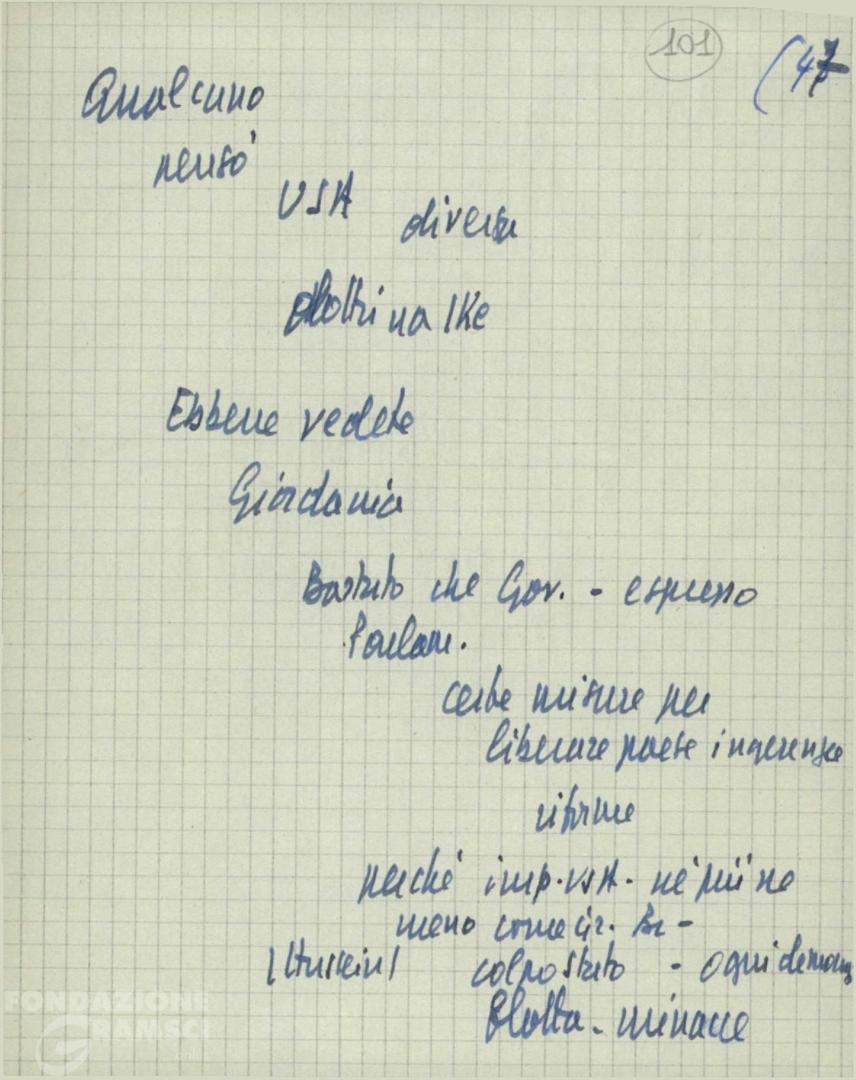 101
(47
Qualcuno
pensò
USA
diversa
dottrina Ike
Ebbene vedete
Giordania
Bastato che Gov. - espresso
Parlam.
certe misure per
liberare paese ingerenze
riforme
perché imp. USA - né più né
meno come
(Hussein) colpo stato - ogni
flotta - minacce
FONDAZIONE
GRAMSCI